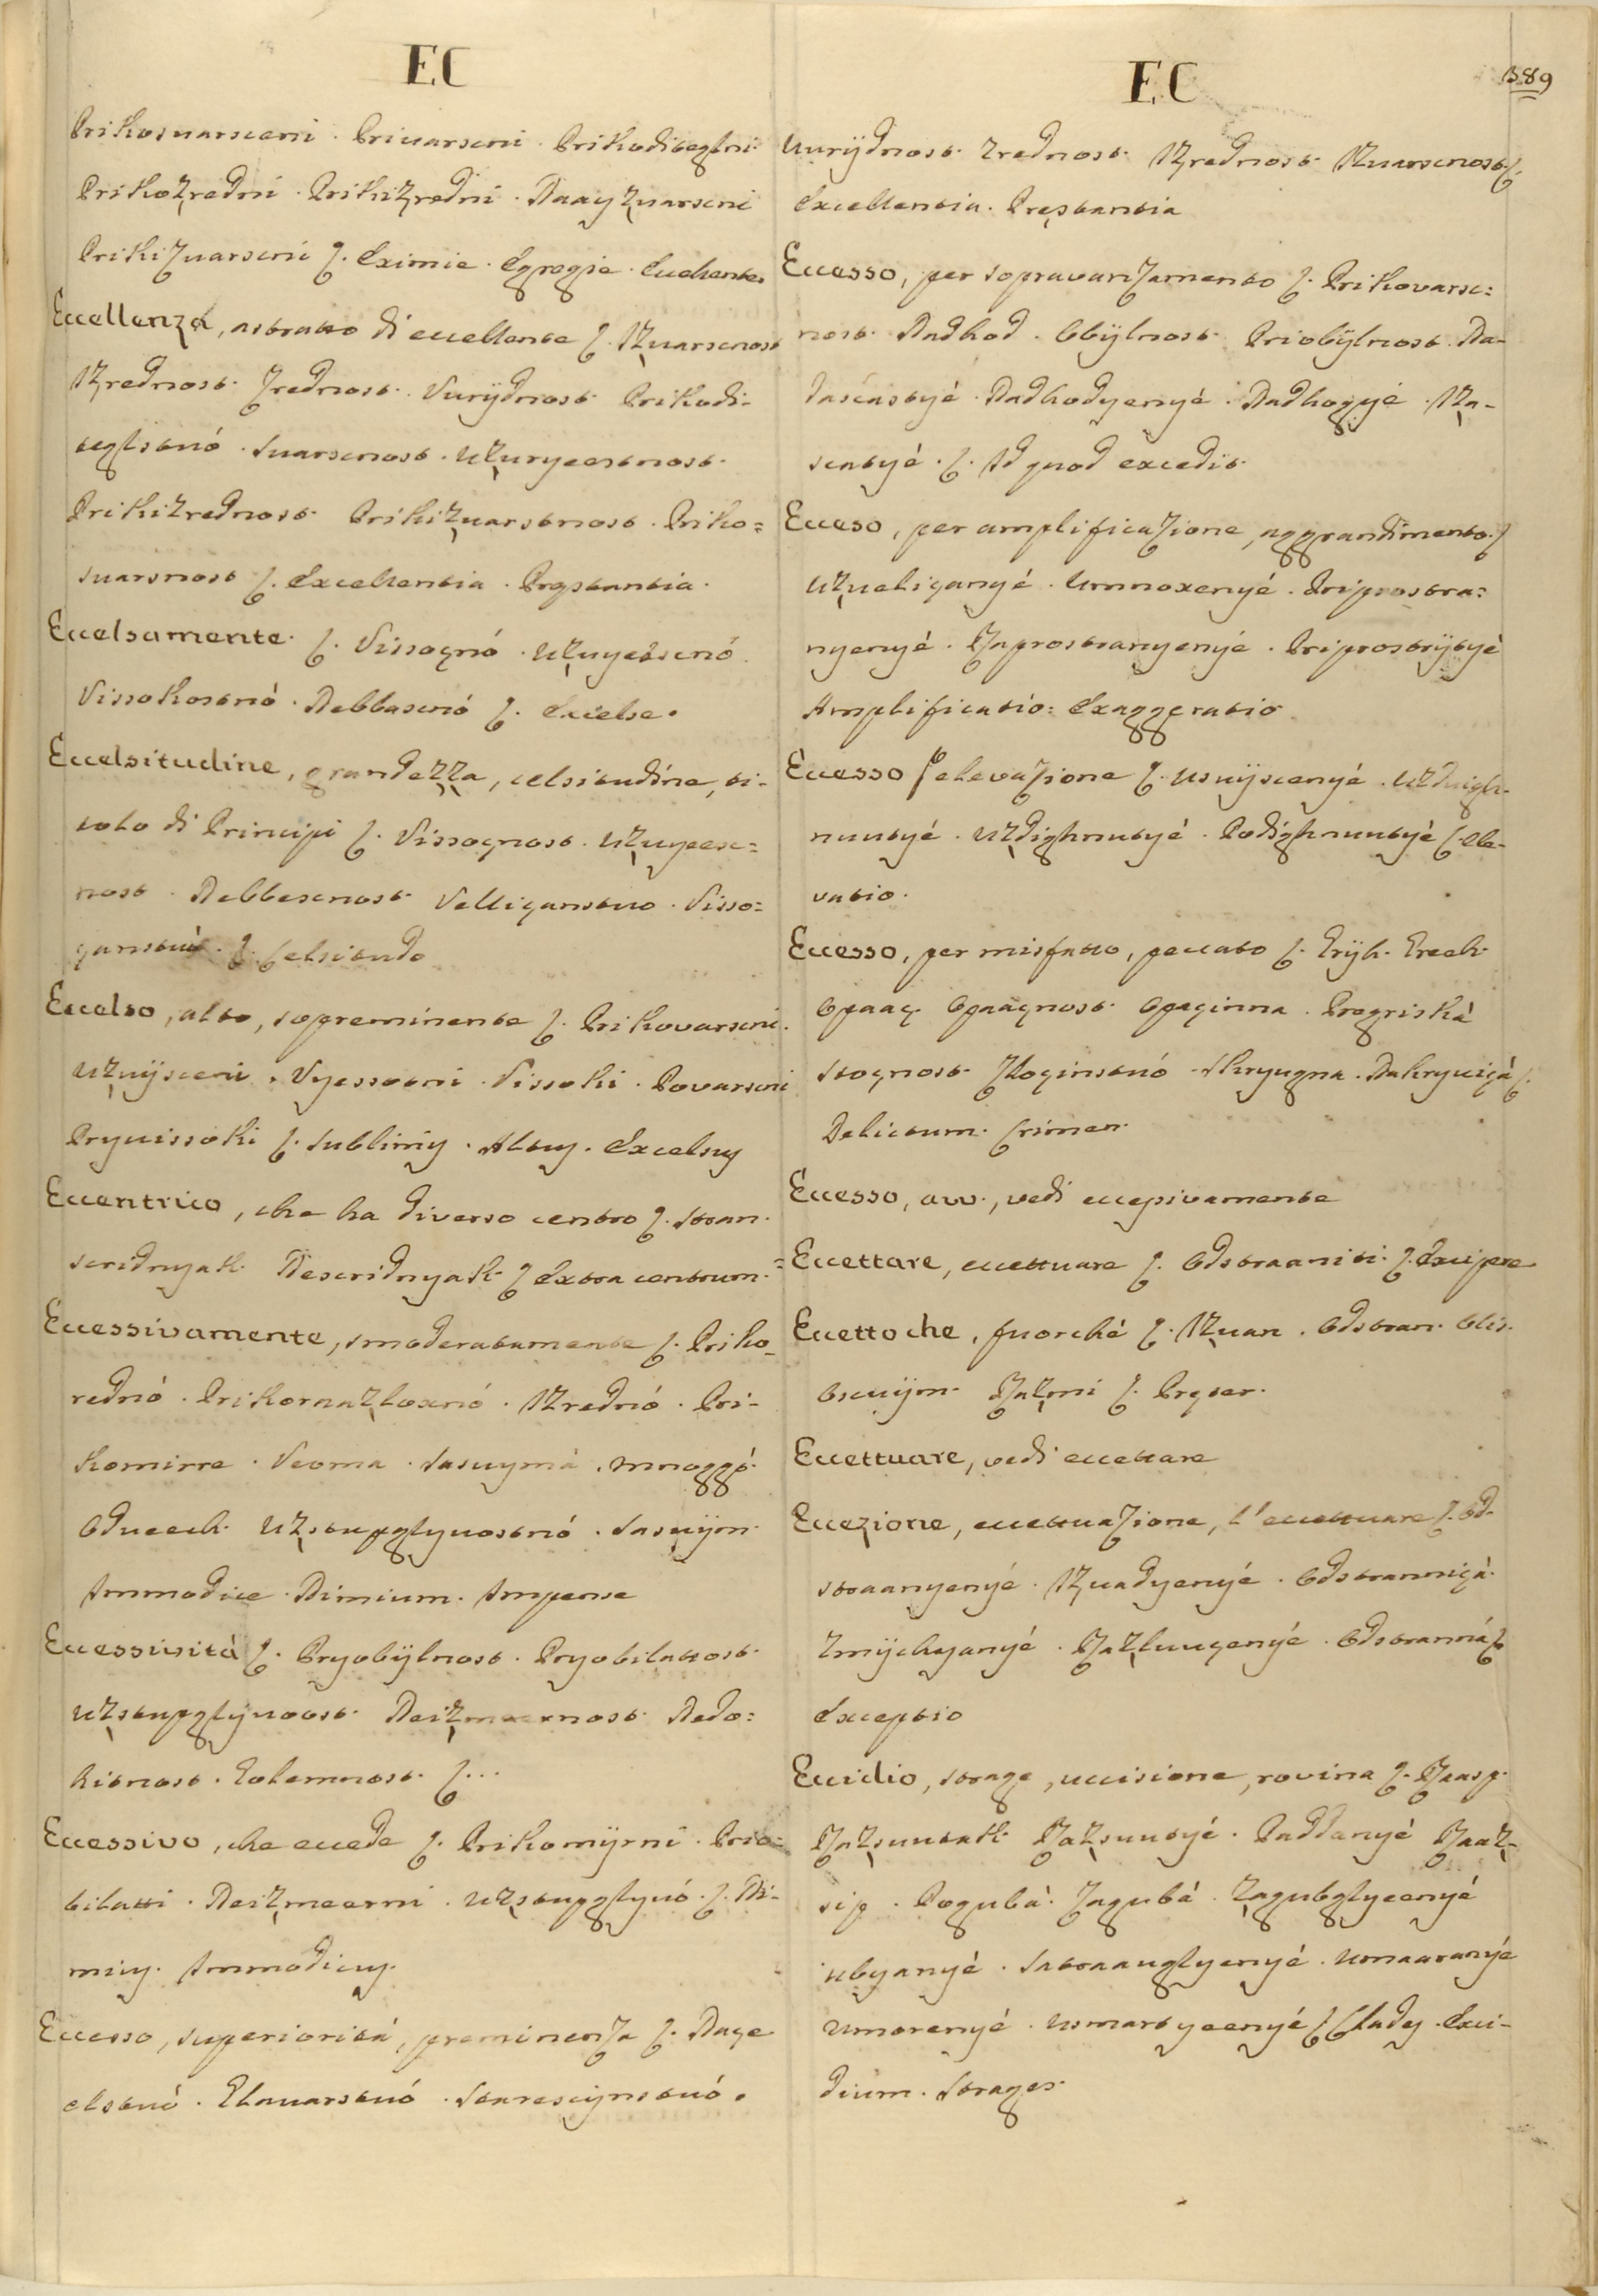 EC
Prikosuarsceni. Privarseni. Prikoditeglni.
Prikozredni. Prikizredni. Naayzuarscni
Prikizuarscni ʃ. Eximie. Egregie. Eccellente.
Eccellenza, astratto di eccellente ʃ. Izuarscnost
Izrednost. Zrednost. Vurÿdnost. Prikodi-
teglstuó. Suarscnost. Uzuryeestnost.
Prikizrednost. Prikizuarstnost. Priko=
suarsnost ʃ. Excellentia. Pręstantia.
Eccelsamente. ʃ. Vissoçnó. Uzuyessenó.
Vissokostnó. Nebbascnó ʃ. Excelse.
Eccelsitudine, grandezza, celsitudine, ti-
tolo di Principi ʃ. Vissoçnost. Uzuyeesc=
nost. Nebbescnost. Velliçanstuo. Visso=
çanstuó. ʃ. Celsitudo
Eccelso, alto, sopreminente ʃ. Prikovarscni.
Uzuÿsceni. Vyessotni. Vissoki. Povarscni
Pryuissoki ʃ. Sublimis. Altus. Excelsus
Eccentrico, che ha diverso centro ʃ. Stran.
scridnyak. Nescridnyak ʃ Extra centrum.
Eccessivamente, smoderatamente ʃ. Priko-
rednó. Prikornazloxnó. Izrednó. Pri-
komirre. Veoma. Sasuymà. Mnoggó.
Odueech. Uzstupglyuostnó. Sasuÿm.
Immodice. Nimium. Impense
Eccessività ʃ. Pryobÿlnost. Pryobilattost.
Uzstupglÿuoost. Neizmeernost. Nedo=
hitnost. Golemnost. ʃ...
Eccessivo, che eccede ʃ. Prikomÿrni. Prio=
bilatti. Neizmeerni. Uzstupglyuó. ʃ. Ni-
mius. Immodicus.
Eccesso, superiorità, preminenza ʃ. Naçe
elstuó. Glauarstuó. Starescÿnstuó.
EC
389
Uurÿdnost. Zrednost. Izrednost. Izuarscnost ʃ.
Excellentia. Pręstantia
Eccesso, per sopravanzamento ʃ. Prikovarsc=
nost. Nadhod. Obÿlnost. Priobÿlnost. Na-
dascastyé. Nadhodyenyé. Nadhogyé. Iza-
scastyé. ʃ. Id quod excedit.
Ecceso, per amplificazione, aggrandimento. ʃ
Uzueliçanyé. Umnoxenyé. Priprostra=
nyenyé. Razprostranyenyé. Priprostrÿtyé
Amplificatio: Exaggeratio
Eccesso ʃ elevazione ʃ. Usuÿscenyé. Uzduigh-
nuutyé. Uzdighnutyé. Podighnuutyé ʃ. Ele-
vatio.
Eccesso, per misfatto, peccato ʃ. Grÿh. Greeh.
Opaaç. Opaaçnost. Opaçinna. Progriskà
Stoçnost. Zloçinstuó. Skryugna. Nakryuiçà ʃ.
Delictum. Crimen.
Eccesso, avv., vedi eccessivamente
Eccettare, eccettuare ʃ. Odstraaniti. ʃ. Excipere
Eccetto che, fuorché ʃ. Izuan. Odstran. Olis.
Oscuÿm. Razmi ʃ. Pręter.
Eccettuare, vedi eccettare
Eccezione, eccettuazione, l'eccettuare ʃ. Od-
straanyenyé. Izuadyenyé. Odstranniçà.
Izmÿchyanyé. Razluuçenyé. Odstrannà ʃ
Exceptio
Eccidio, strage, uccisione, rovina ʃ. Raasp.
Razsuutak. Razsuutyé. Paddanyé Raaz-
sip. Pogubà. Zagubà. Zagubglyeenyé
Ubyanyé. Satraauglyenyé. Umaaranyé
Umorenyé. Usmartyeenyé ʃ Clades. Exci-
dium. Strages.